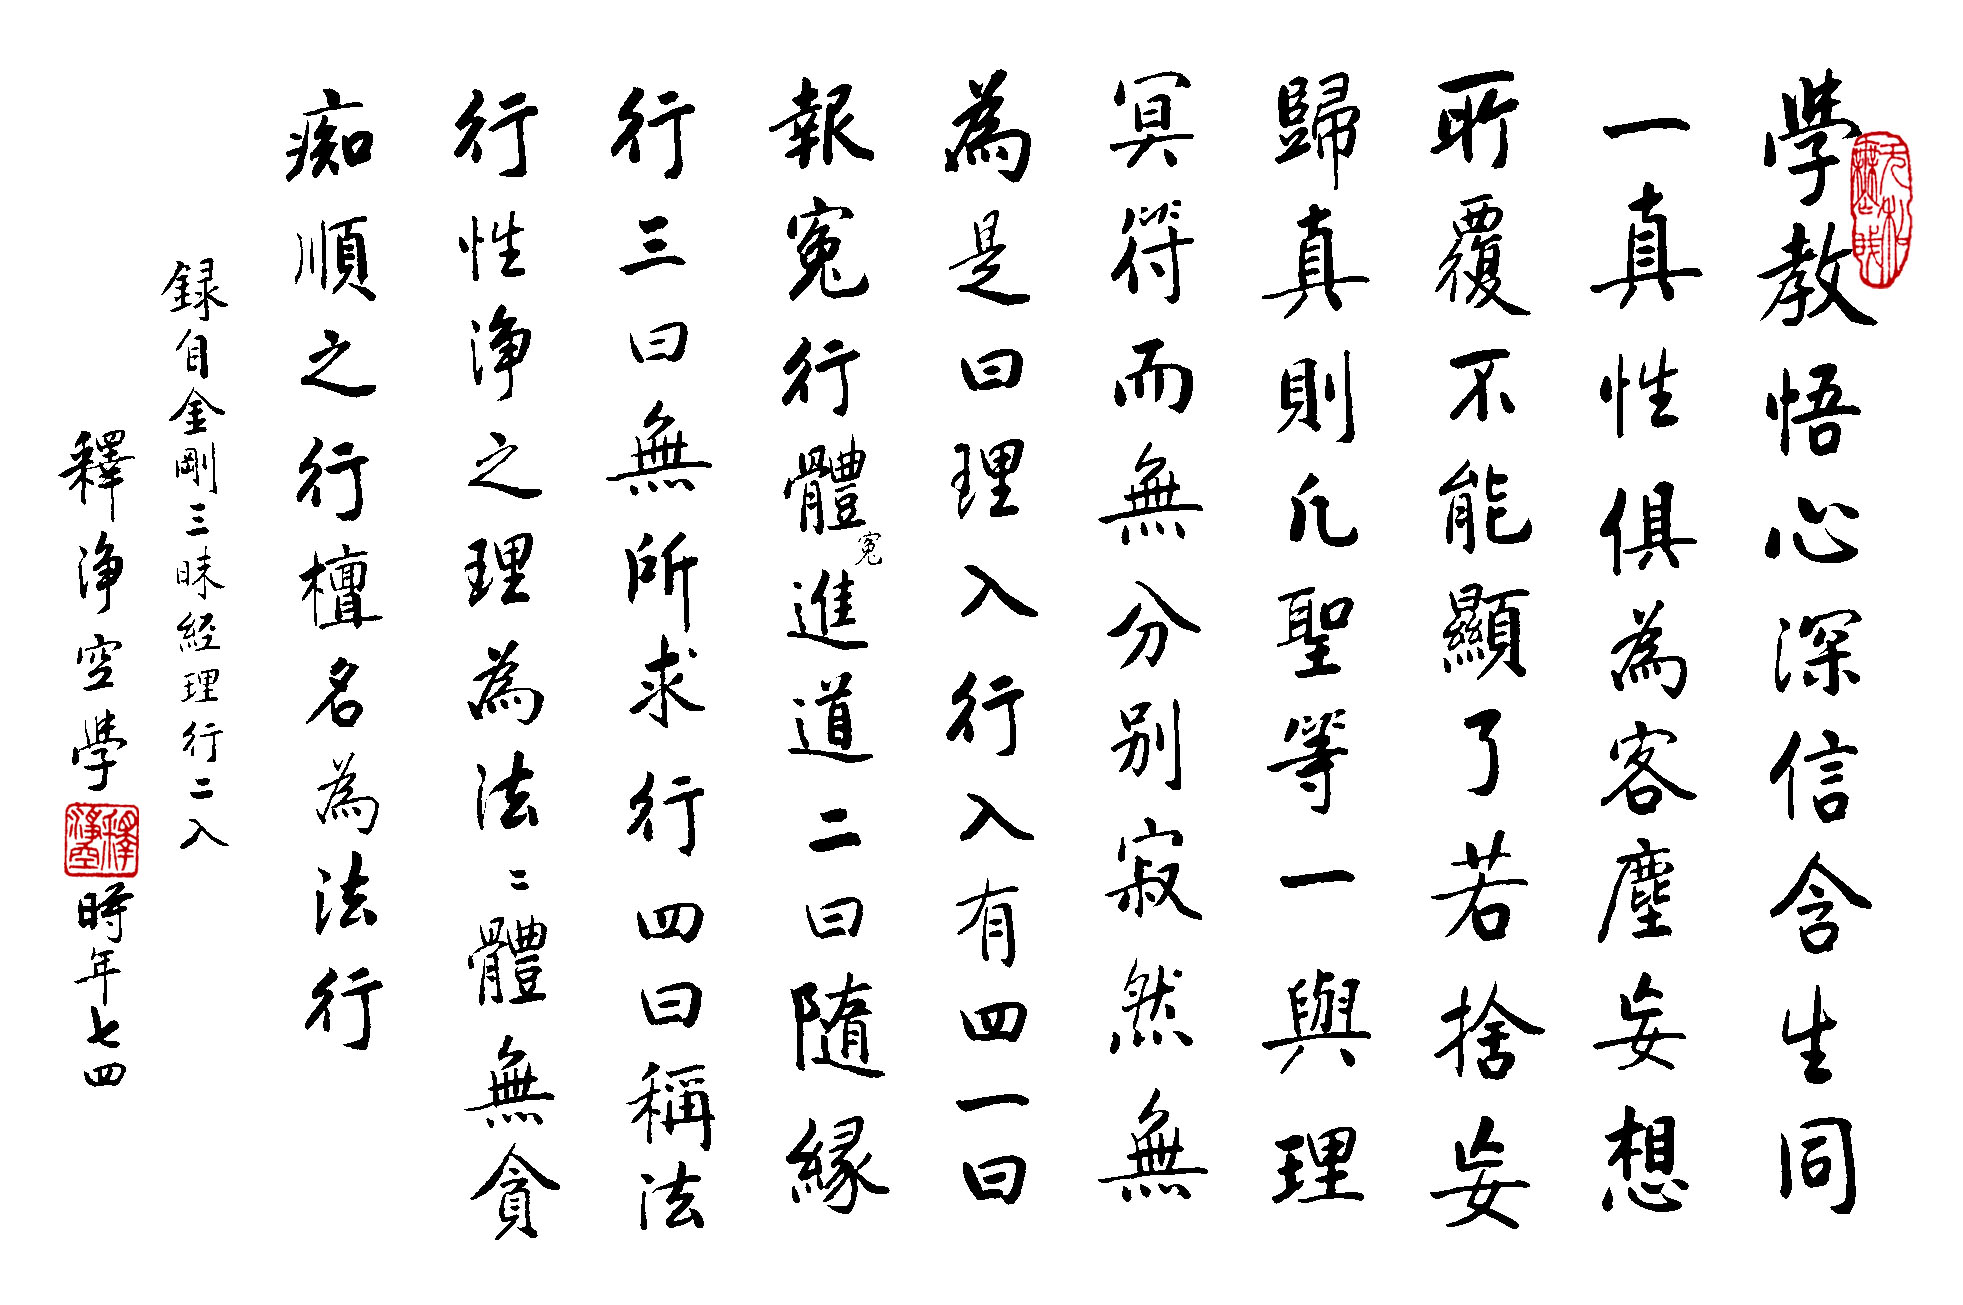 學教悟心深信含生同
一真性俱為客塵妄想
所覆不能顯了若捨妄
歸真則凡聖等一與理
冥符而無分別寂然無
為是曰理入行入有四一曰
報冤行體冤進道二曰隨緣
行三曰無所求行四曰稱法
行性淨之理為法〻體無貪
痴順之行檀名為法行
録自金剛三昧経理行二入
釋淨空學
釋淨空
時年七四